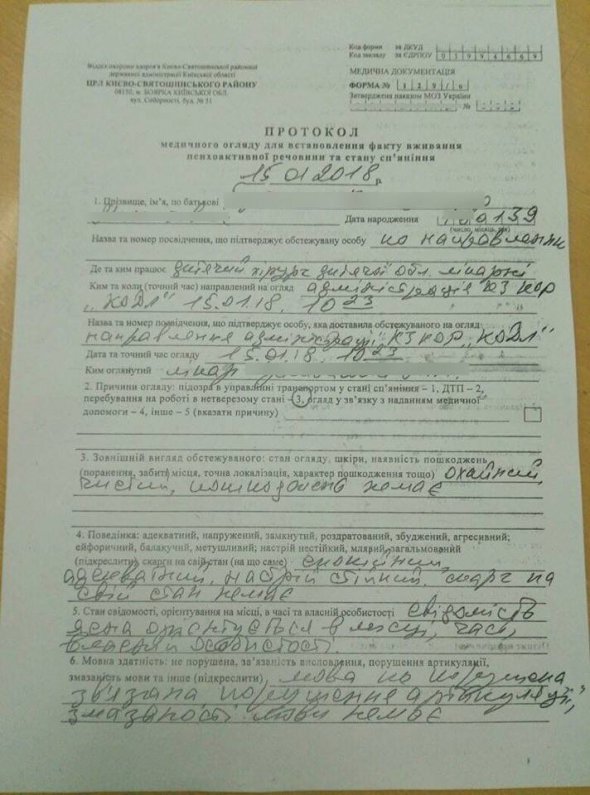 Код форми за ДКУД 0 1 9 9 6 6 6 9
Код закладу за ЄДРПОУ
Відділ охорони здоров'я Києво-Святошинської районної
державної адміністрації Київської області
ЦРЛ КИЄВО-СВЯТОШИНСЬКОГО РАЙОНУ
08150, м. БОЯРКА КИЇВСЬКОЇ ОБЛ.
вул. Соборності, буд. № 51
МЕДИЧНА ДОКУМЕНТАЦІЯ
ФОРМА № 1 2 9 / о
Затверджена наказом МОЗ України
№
ПРОТОКОЛ
медичного огляду для встановлення факту вживання
психоактивної речовини та стану сп'яніння
15.01.2018 р.
1. Прізвище, ім'я, по батькові
Дата народження
(число, місяць, рік)
Назва та номер посвідчення, що підтверджує обстежувану особу по направленню
Де та ким працює дитячий хірург дитячої обл. лікарні
Ким та коли (точний час) направлений на огляд адміністрація КЗ КОР
"КОДЛ" 15.01.18. 10 23
Назва та номер посвідчення, що підтверджує особу, яка доставила обстежуваного на огляд
направлення адміністрації КЗ КОР "КОДЛ"
Дата та точний час огляду 15.01.18. 10 23
Ким оглянутий лікар
2. Причини огляду: підозра в управлінні транспортом у стані сп'яніння – 1, ДТП – 2,
перебування на роботі в нетверезому стані – 3, огляд у зв'язку з наданням медичної
допомоги – 4, інше – 5 (вказати причину)
3. Зовнішній вигляд обстежуваного: стан огляду, шкіри, наявність пошкоджень
(поранення, забиті місця, точна локалізація, характер пошкодження тощо) охайний,
чистий, пошкоджень немає
4. Поведінка: адекватний, напружений, замкнутий, роздратований, збуджений, агресивний;
ейфоричний, балакучий, метушливий; настрій нестійкий, млявий, загальмований
(підкреслити), скарги на свій стан (на що саме) спокійний,
адекватний, настрій стійкий, скарг на
свій стан немає
5. Стан свідомості, орієнтування на місці, в часі та власній особистості свідомість
ясна орієнтується в місці, часі,
власній особистості.
6. Мовна здатність: не порушена, зв'язаність висловлювання, порушення артикуляції,
змазаність мови та інше (підкреслити) мова не порушена
зв'язана порушення артикуляції,
змазаності мови немає